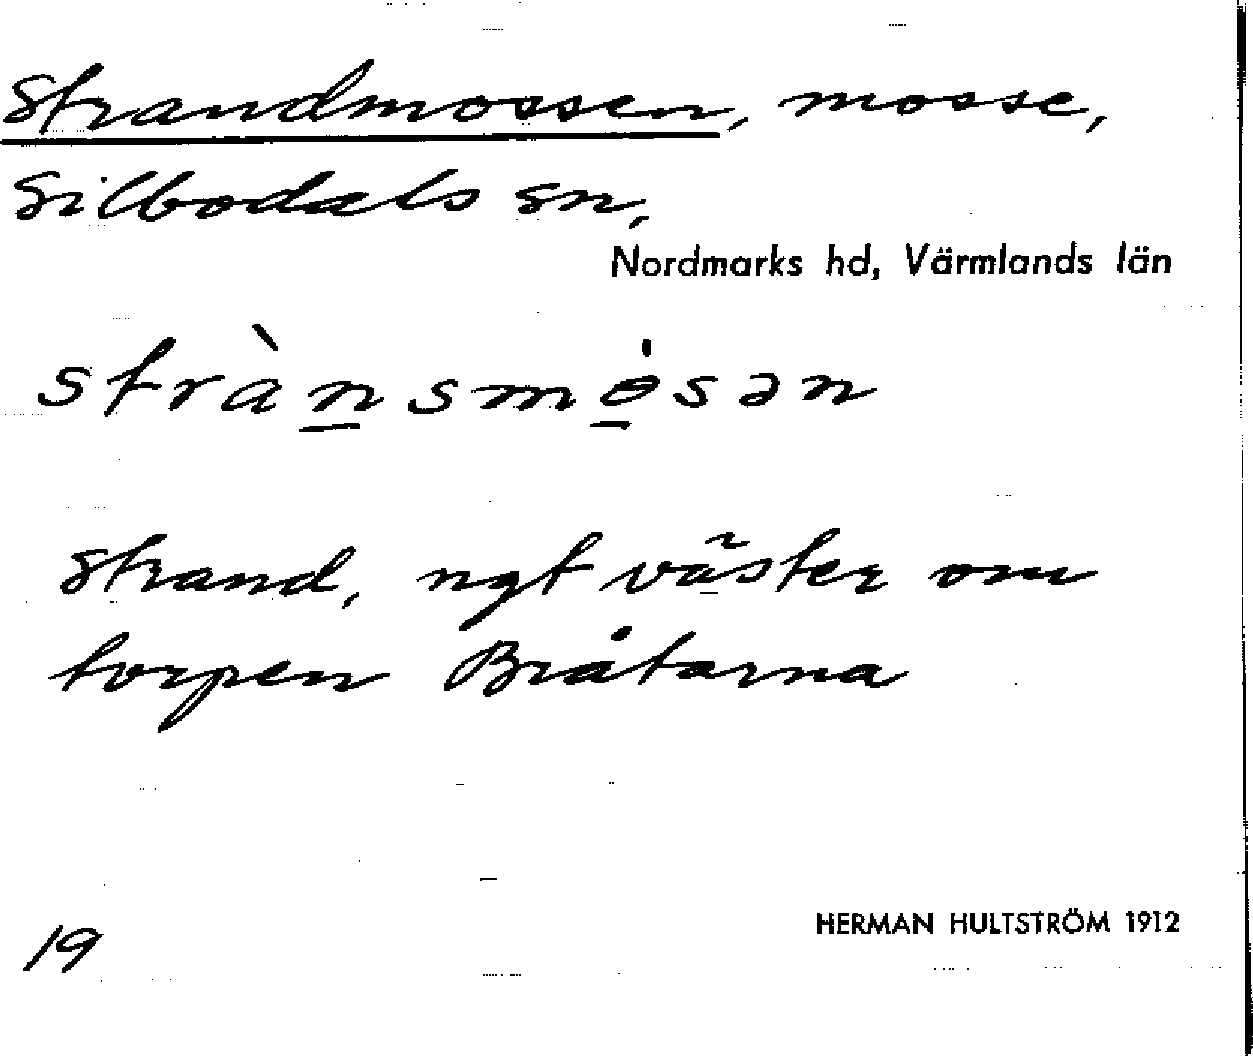 Strandmossen, mosse,
Silbodals sn,
Nordmarks hd, Värmlands län
strànsmɵ̇sən
Strand, ngt väster om
torpen Bråtarna
HERMAN HULTSTRÖM 1912
19